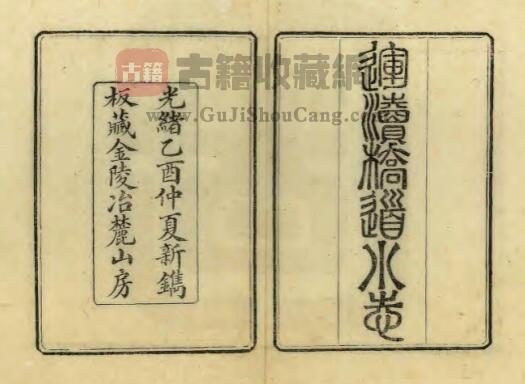 運瀆橋道小志
光緒乙酉仲夏新鐫
板藏金陵冶麓山房
古籍
古籍收藏網
www.GuJiShouCang.com